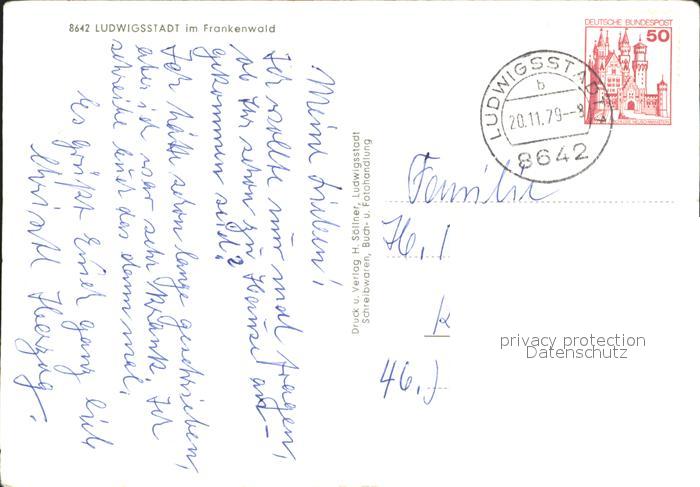 8642 LUDWIGSSTADT im Frankenwald
Meine Lieben!
Ich wollte nur mal fragen,
ob Ihr schon zu Hause an-
gekommen seid?
Ich hätte schon lange geschrieben,
aber ich war sehr krank. Ich
schreibe Euch das dann mal.
Es grüßt Euch ganz lieb
Herzog.
Druck u. Verlag H. Söllner, Ludwigsstadt
Schreibwaren, Buch- u. Fotohandlung
DEUTSCHE BUNDESPOST
50
LUDWIGSSTADT
b
20.11.79-8
8642
Familie
H.
46.
privacy protection
Datenschutz